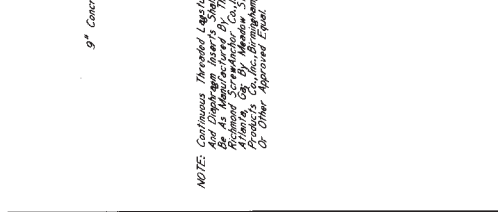 9" Concr
NOTE: Continuous Threaded Lagstu
And Diaphragm Inserts Shall
Be As Manufactured By Th
Richmond ScrewAnchor Co.,I
Atlanta, Ga; By Meadow S
Products Co.,Inc.,Birmingham
Or Other Approved Equal.